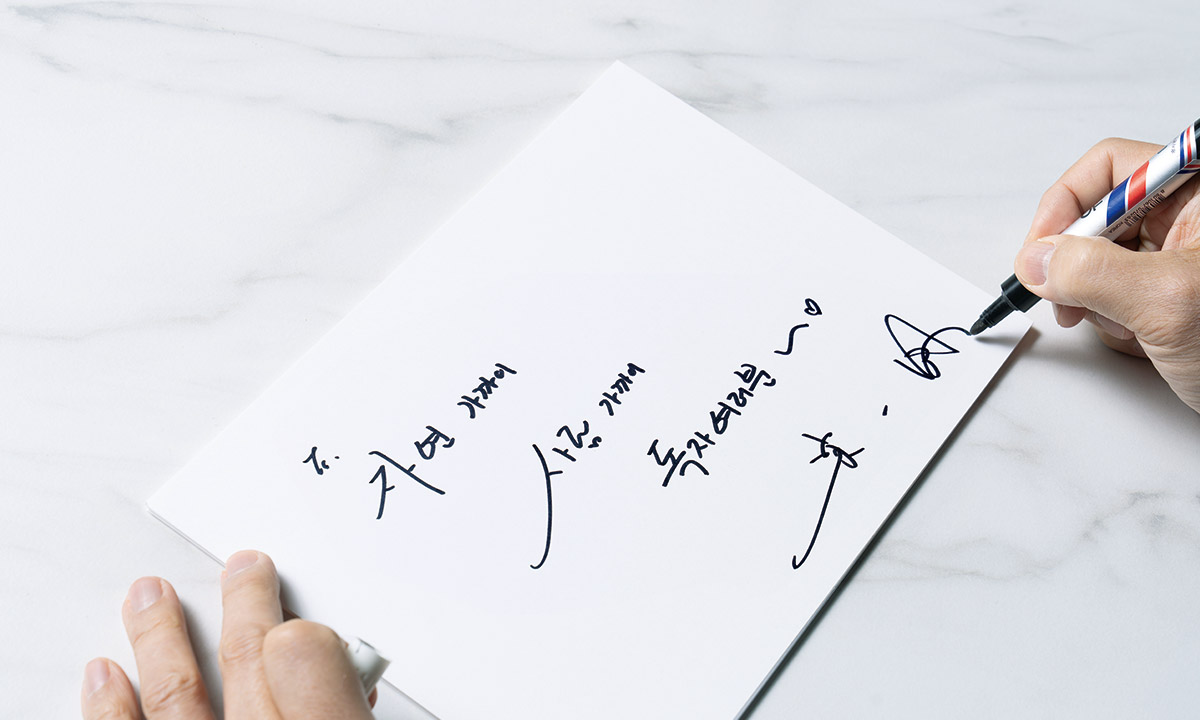 To.
자연 가까이
사람 가까이
독자 여러분 ~♡